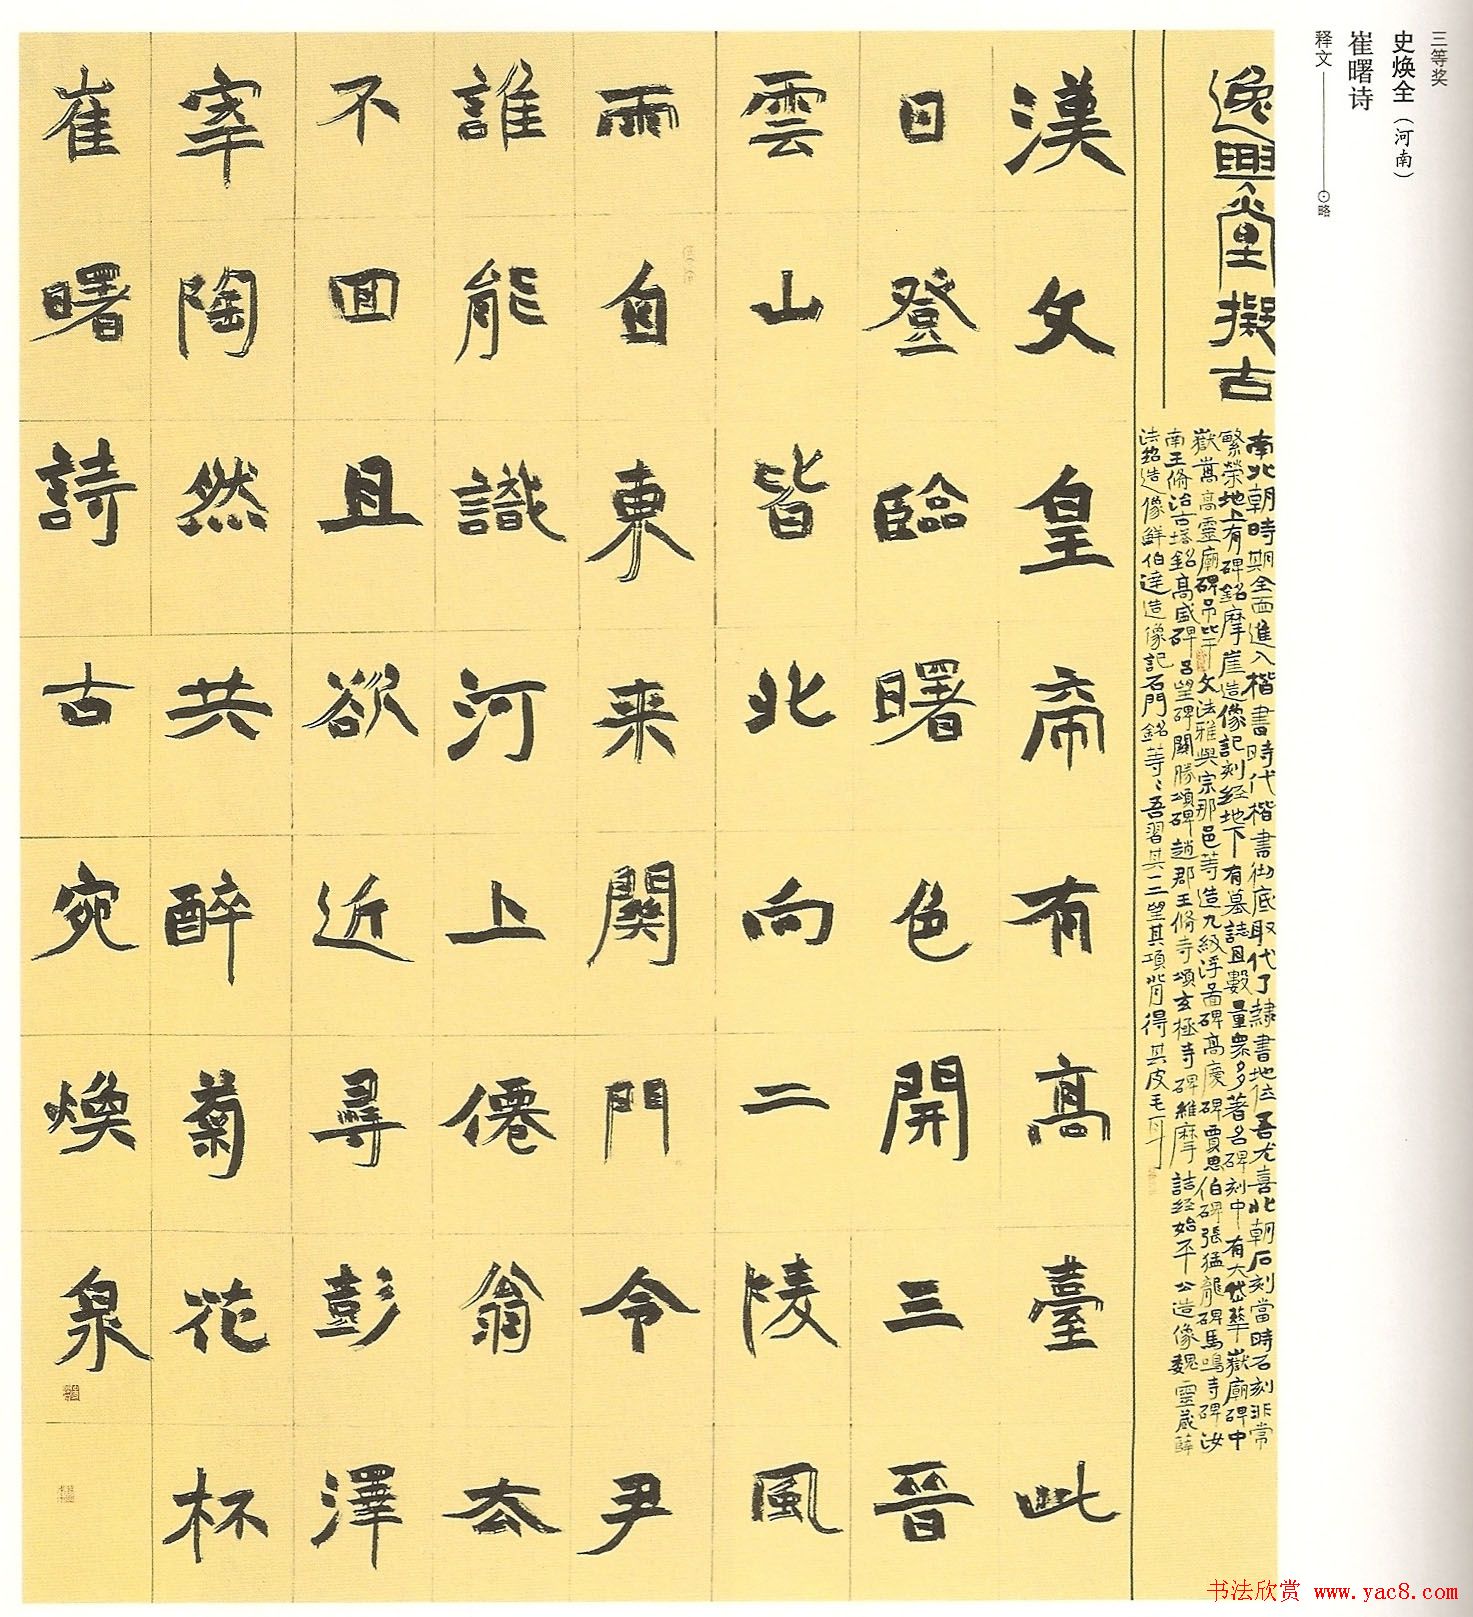 三等奖
史焕全（河南）
崔曙诗
释文——⊙略
逸興堂擬古
南北朝時期全面進入楷書時代楷書彻底取代了隸書地位吾尤喜北朝石刻當時石刻非常
繁榮地上有碑銘摩崖造像記刻经地下有墓誌且數量衆多著名碑刻中有大代華嶽廟碑中
嶽嵩高靈廟碑吊比干文法雅與宗那邑等造九級浮圖碑高慶碑賈思伯碑張猛龍碑馬鳴寺碑汝
南王脩治古塔銘高盛碑吕望碑闕勝頌碑趙郡王脩寺頌玄極寺碑維摩詰经始平公造像魏靈藏薛
法紹造像鮮伯達造像記石門銘等等吾習其一二望其項背得其皮毛耳
漢文皇帝有高臺此
日登臨曙色開三晉
雲山皆北向二陵風
雨自東来關門令尹
誰能識河上僊翁去
不回且欲近尋彭澤
宰陶然共醉菊花杯
崔曙詩古宛焕泉
书法欣赏 www.yac8.com